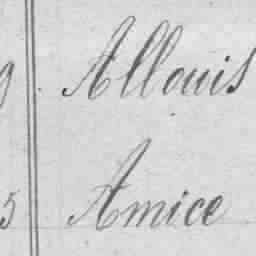 9 Allouis
5 Amice